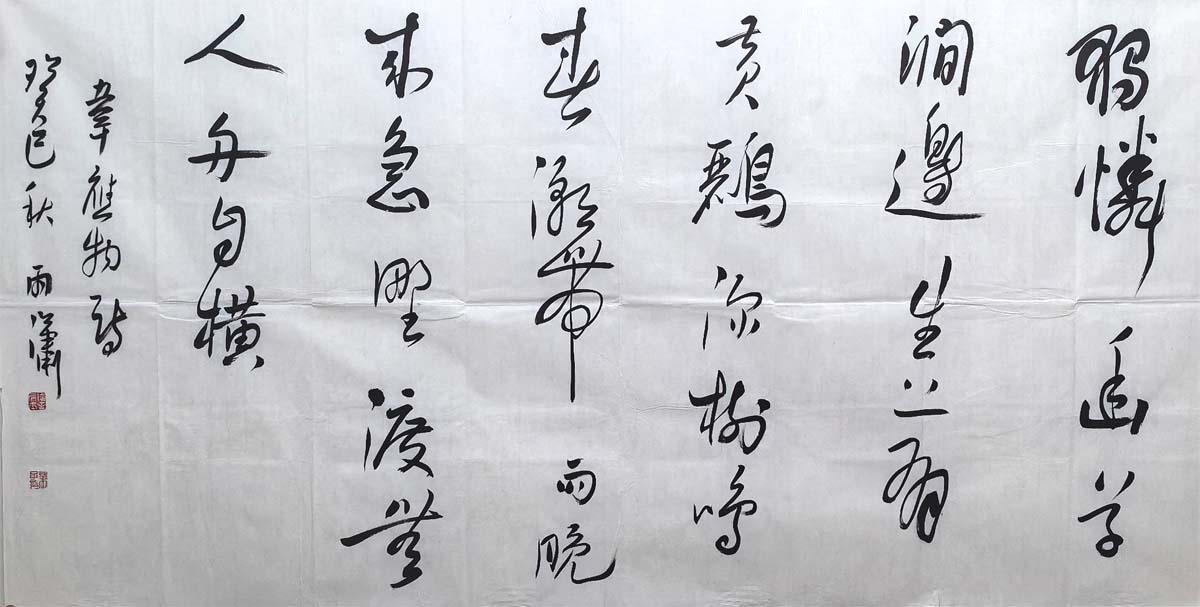 獨憐幽草
澗邊生上有
黄鸝深樹鳴
春潮帶雨晚
来急野渡無
人舟自橫
韋應物詩
癸巳秋 雨瀟